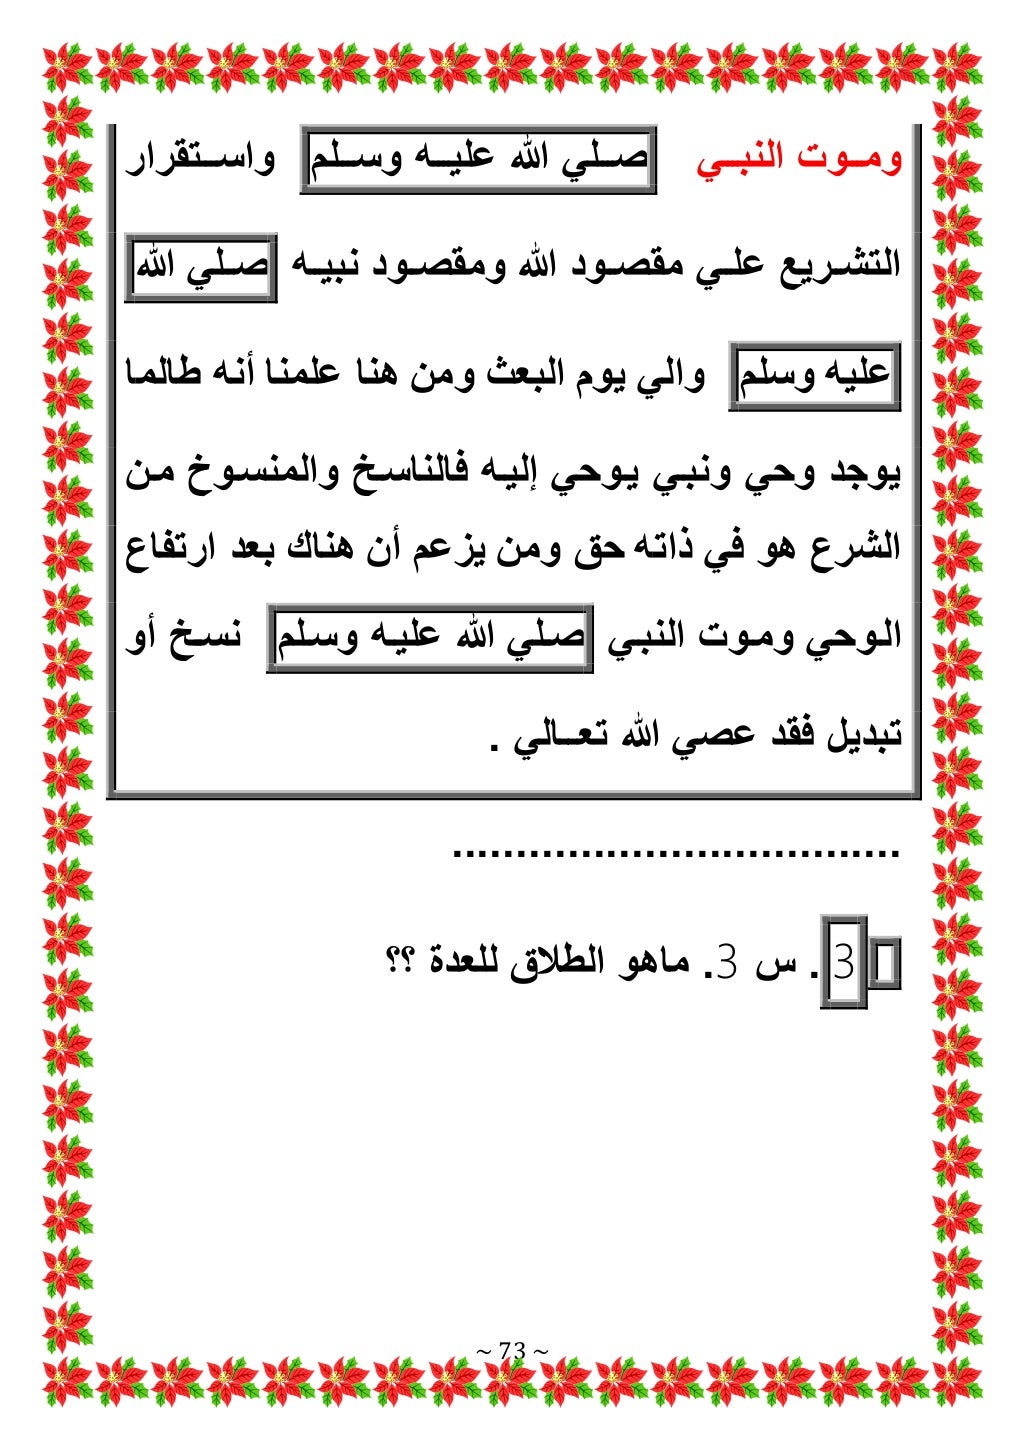 ومـوت النبـي صـلي الله عليـه وسـلم واسـتقرار
التشـريع علـي مقصـود الله ومقصـود نبيـه صـلي الله
عليه وسلم والي يوم البعث ومن هنا علمنا أنه طالما
يوجد وحي ونبـي يـوحي إليـه فالناسـخ والمنسـوخ مـن
الشرع هو في ذاته حق ومن يزعم أن هناك بعد ارتفاع
الـوحي ومـوت النبـي صـلي الله عليـه وسـلم نسـخ أو
تبديل فقد عصي الله تعـالي .
...................................
3. س 3. ماهو الطلاق للعدة ؟؟
~ 73 ~